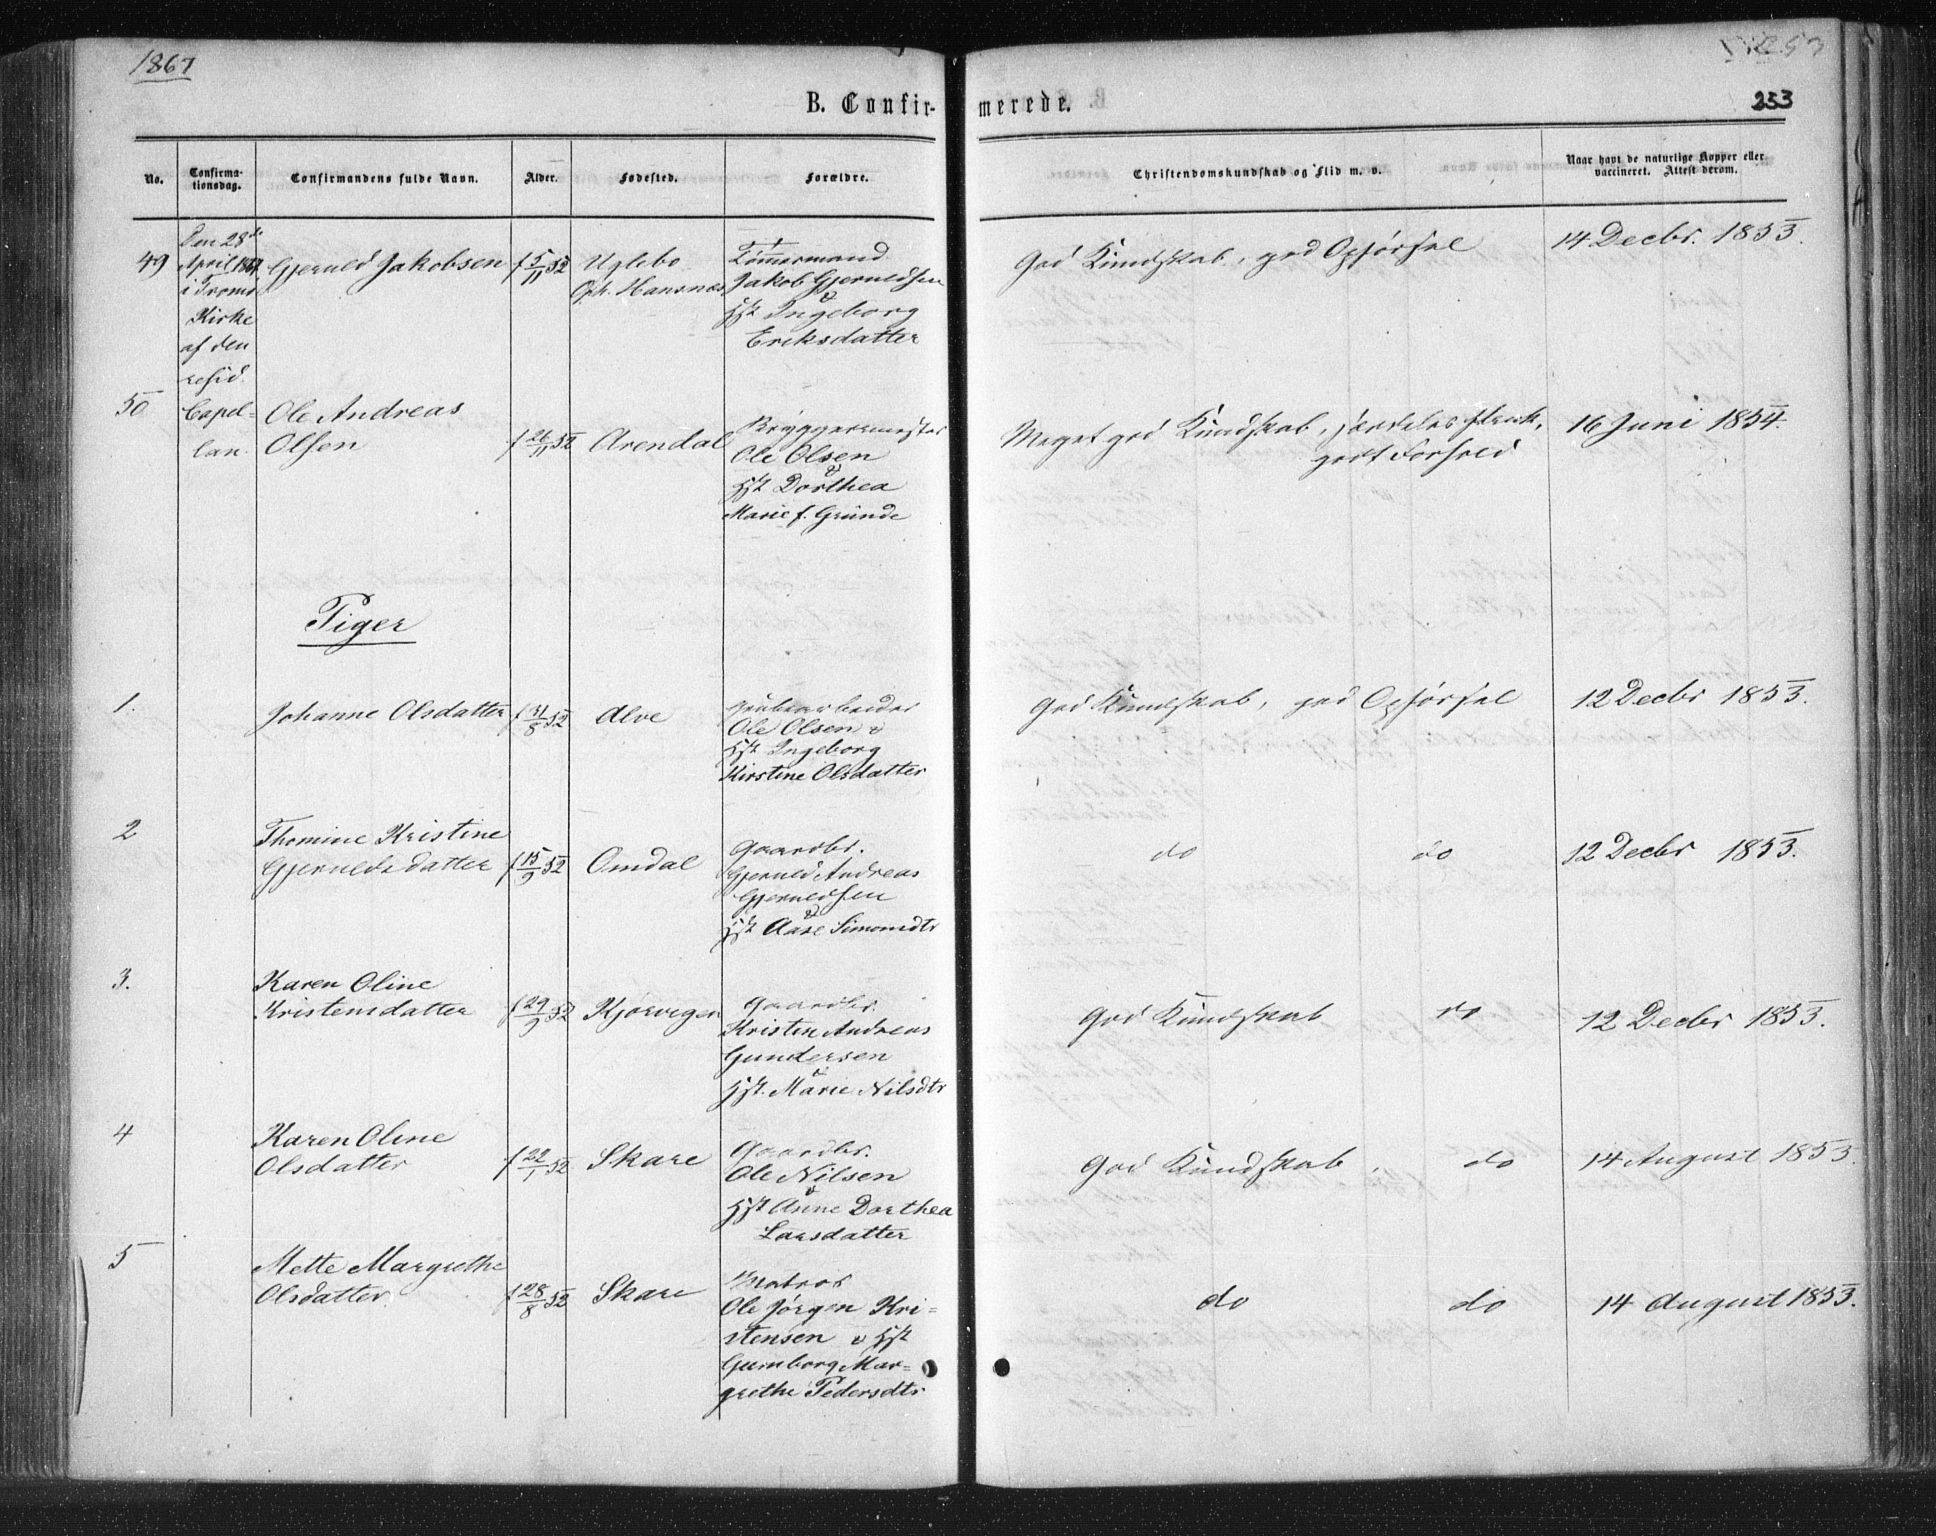 1867
B. Confir-
merede.
253
No.
Confirma-
tionsdag.
Confirmandens fulde Navn.
Alder.
Fødested.
Forældre.
Christendomskundskab og Flid m. v.
Naar havt de naturlige Kopper eller
vaccineret. Attest derom.
49
Den 28de
April 1867
i Tromø
Kirke
af den
resid.
Capel-
lan.
Gjeruld Jakobsen
f 5/11 52
Uglebo
Oph. Hansnæs
Tømmermand
Jakob Gjeruldsen
&
Hst Ingeborg
Eriksdatter
God Kundskab, god Opførsel
14 Decbr. 1853.
50
Ole Andreas
Olsen
f 26/11 52
Arendal
Bryggermester
Ole Olsen
&
Hst Dorthea
Marie f. Grunde
Meget god Kundskab, særdeles flink,
godt Forhold
16 Juni 1854.
Piger
1.
Johanne Olsdatter
f 31/8 52
Alve
Grubearbeider
Ole Olsen &
Hst Ingeborg
Kirstine Olsdatter
God Kundskab, god Opførsel
12 Decbr 1853.
2
Thomine Kristine
Gjerulds datter
f 15/9 52
Omdal
Gaardbr.
Gjeruld Andreas
Gjeruldsen
&
Hst Aase Simonsdtr
do do
12 Decbr 1853.
3.
Karen Oline
Kristensdatter
f 29/9 52
Kjørvegen
Gaardbr.
Kristen Andreas
Gundersen
&
Hst. Marie Nilsdtr
God Kundskab do
12 Decbr 1853.
4
Karen Oline
Olsdatter
f 22/1 52
Skare
Gaardbr.
Ole Nilsen
&
Hst Anne Dorthea
Larsdatter
God Kundskab, do
14 August 1853.
5
Mette Margrethe
Olsdatter.
f 28/8 52
Skare
Matros
Ole Jørgen Kri-
stensen & Hst
Gumborg Mar-
grethe Pedersdtr
do do
14 August 1853.